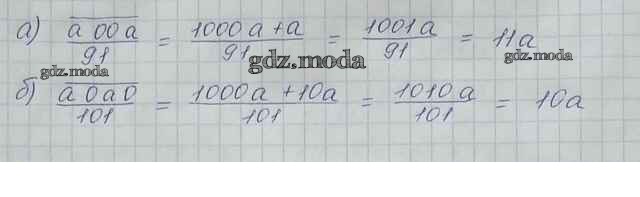 а) a00a/91 = 1000a+a/91 = 1001a/91 = 11a
gdz.moda gdz.moda gdz.moda
б) a0a0/101 = 1000a+10a/101 = 1010a/101 = 10a